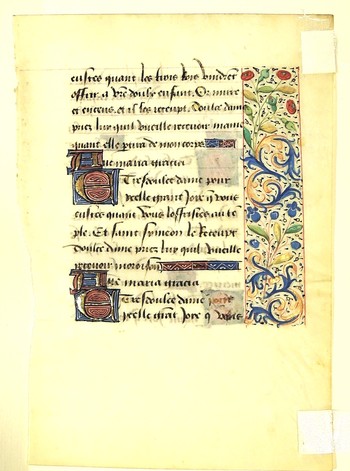 eustes quant les trois Rois vindret
offrir a vre doulx enfant. Or mirre
et encens. et il les receupt. Doulce dame
priez luy quil vueille recevoir mame
quant elle ptira de mon corps
Aue maria gracia
E Tresdoulce dame pour
ycelle grant Joye q vous
eustes quant vous loffristes au te
ple. Et saint symeon le Receupt
Doulce dame priez luy quil vueille
recevoir moroison
Aue maria gracia
E Tresdoulce dame pour
ycelle grant Joye q vous